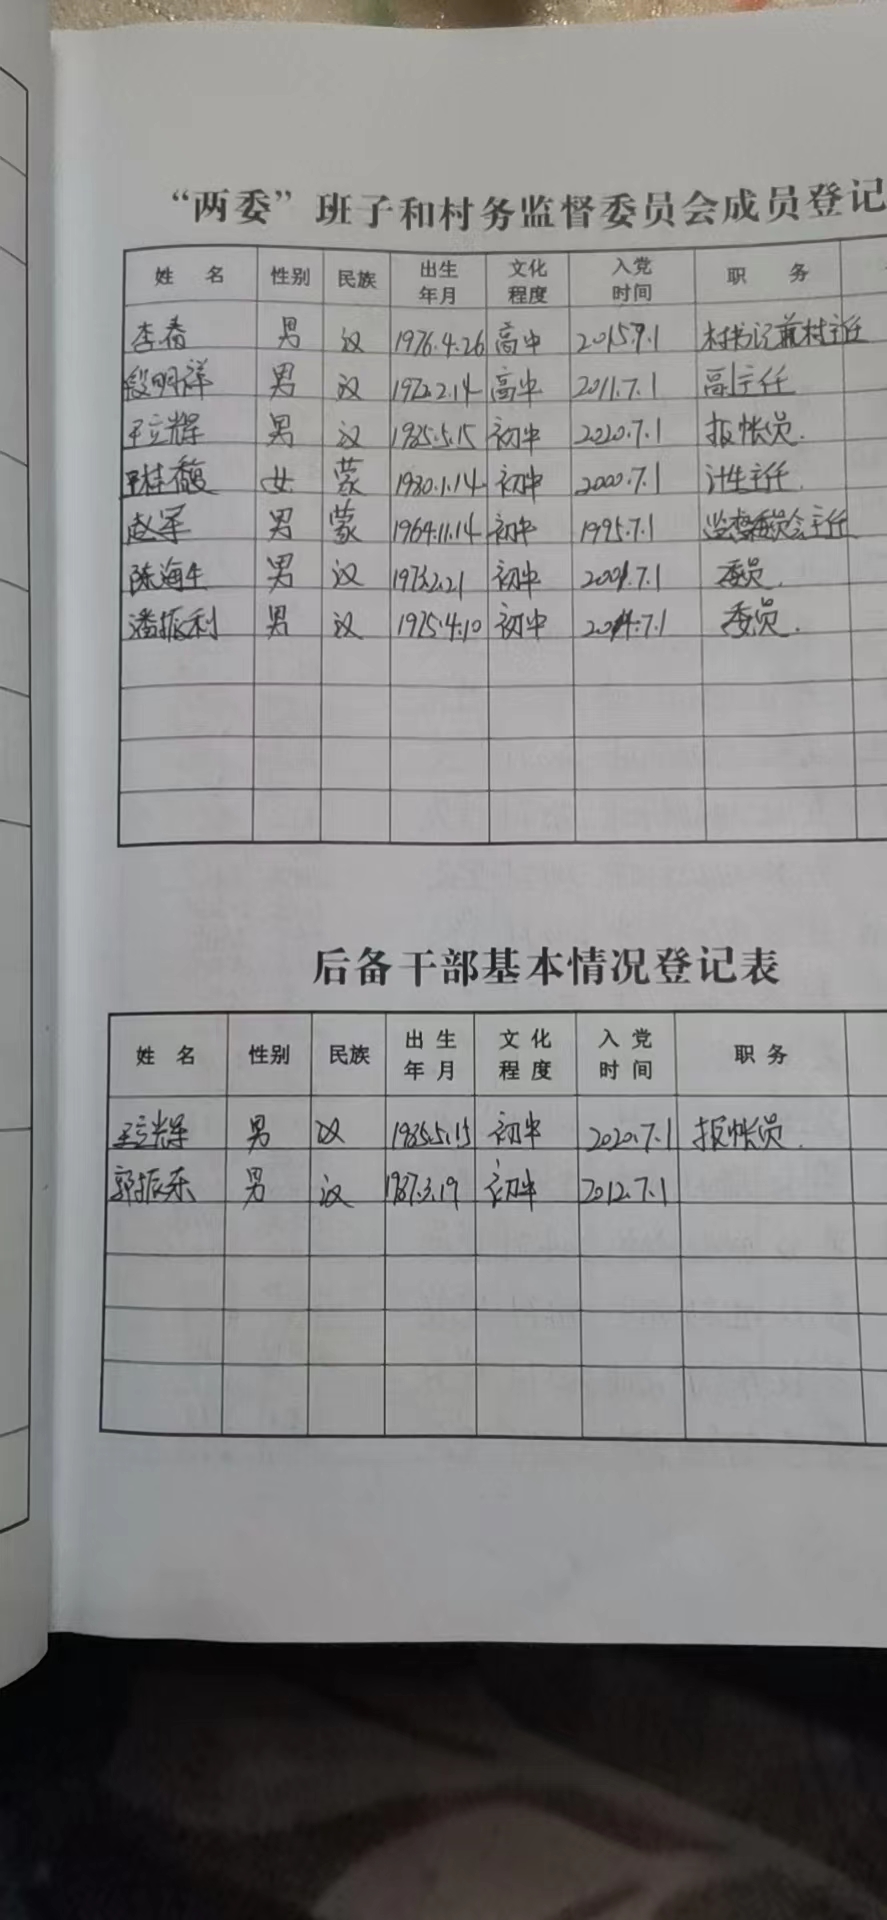 “两委”班子和村务监督委员会成员登记
姓 名 性别 民族 出生年月 文化程度 入党时间 职 务
李春 男 汉 1976.4.26 高中 2015.7.1 村书记兼村主任
段明祥 男 汉 1972.2.14 高中 2011.7.1 副主任
王立辉 男 汉 1985.5.15 初中 2020.7.1 报帐员.
王桂馥 女 蒙 1980.1.14 初中 2000.7.1 计生主任.
赵军 男 蒙 1964.11.14 初中 1995.7.1 主任
陈海生 男 汉 1973.2.21 初中 2001.7.1 委员.
潘振利 男 汉 1975.4.10 初中 2014.7.1 委员.
后备干部基本情况登记表
姓 名 性别 民族 出生年月 文化程度 入党时间 职 务
王立辉 男 汉 1985.5.15 初中 2020.7.1 报帐员.
郭振东 男 汉 1987.3.19 初中 2012.7.1